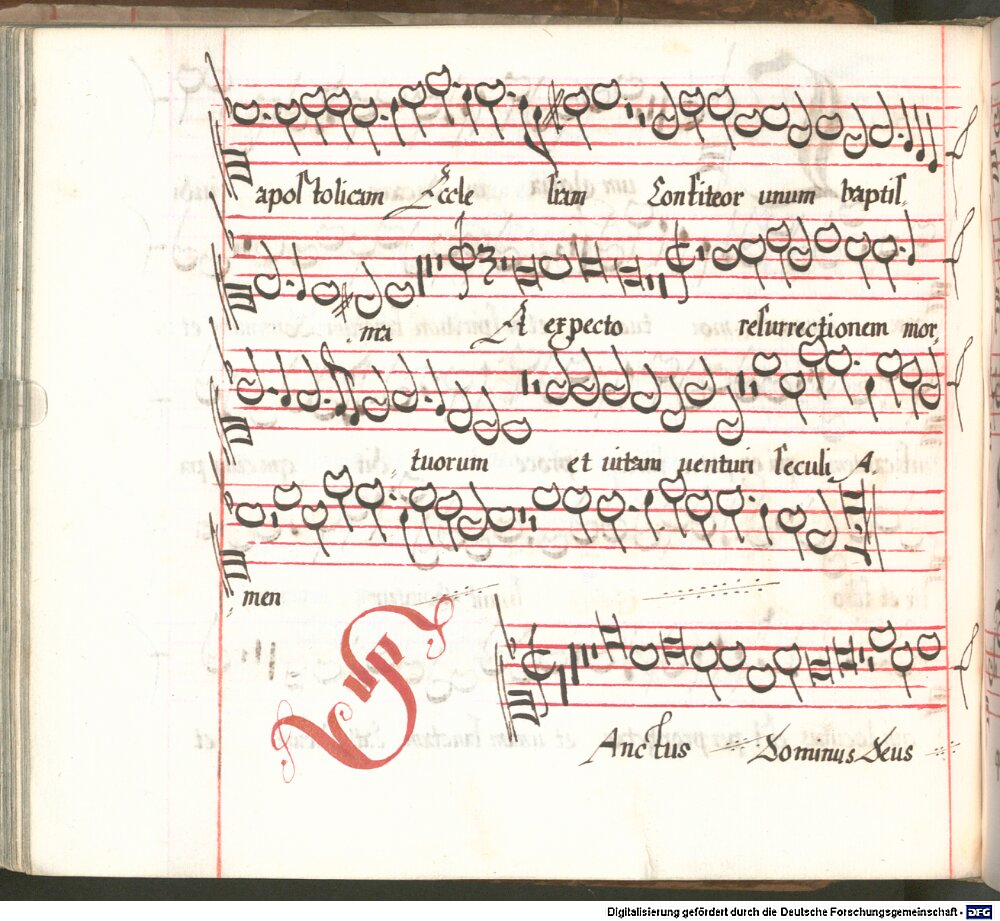 apostolicam Eccle siam Confiteor unum baptis.
.ma Et expecto resurrectionem mor.
tuorum et vitam venturi seculi A.
men
S Anctus Dominus Deus
Digitalisierung gefördert durch die Deutsche Forschungsgemeinschaft - DFG